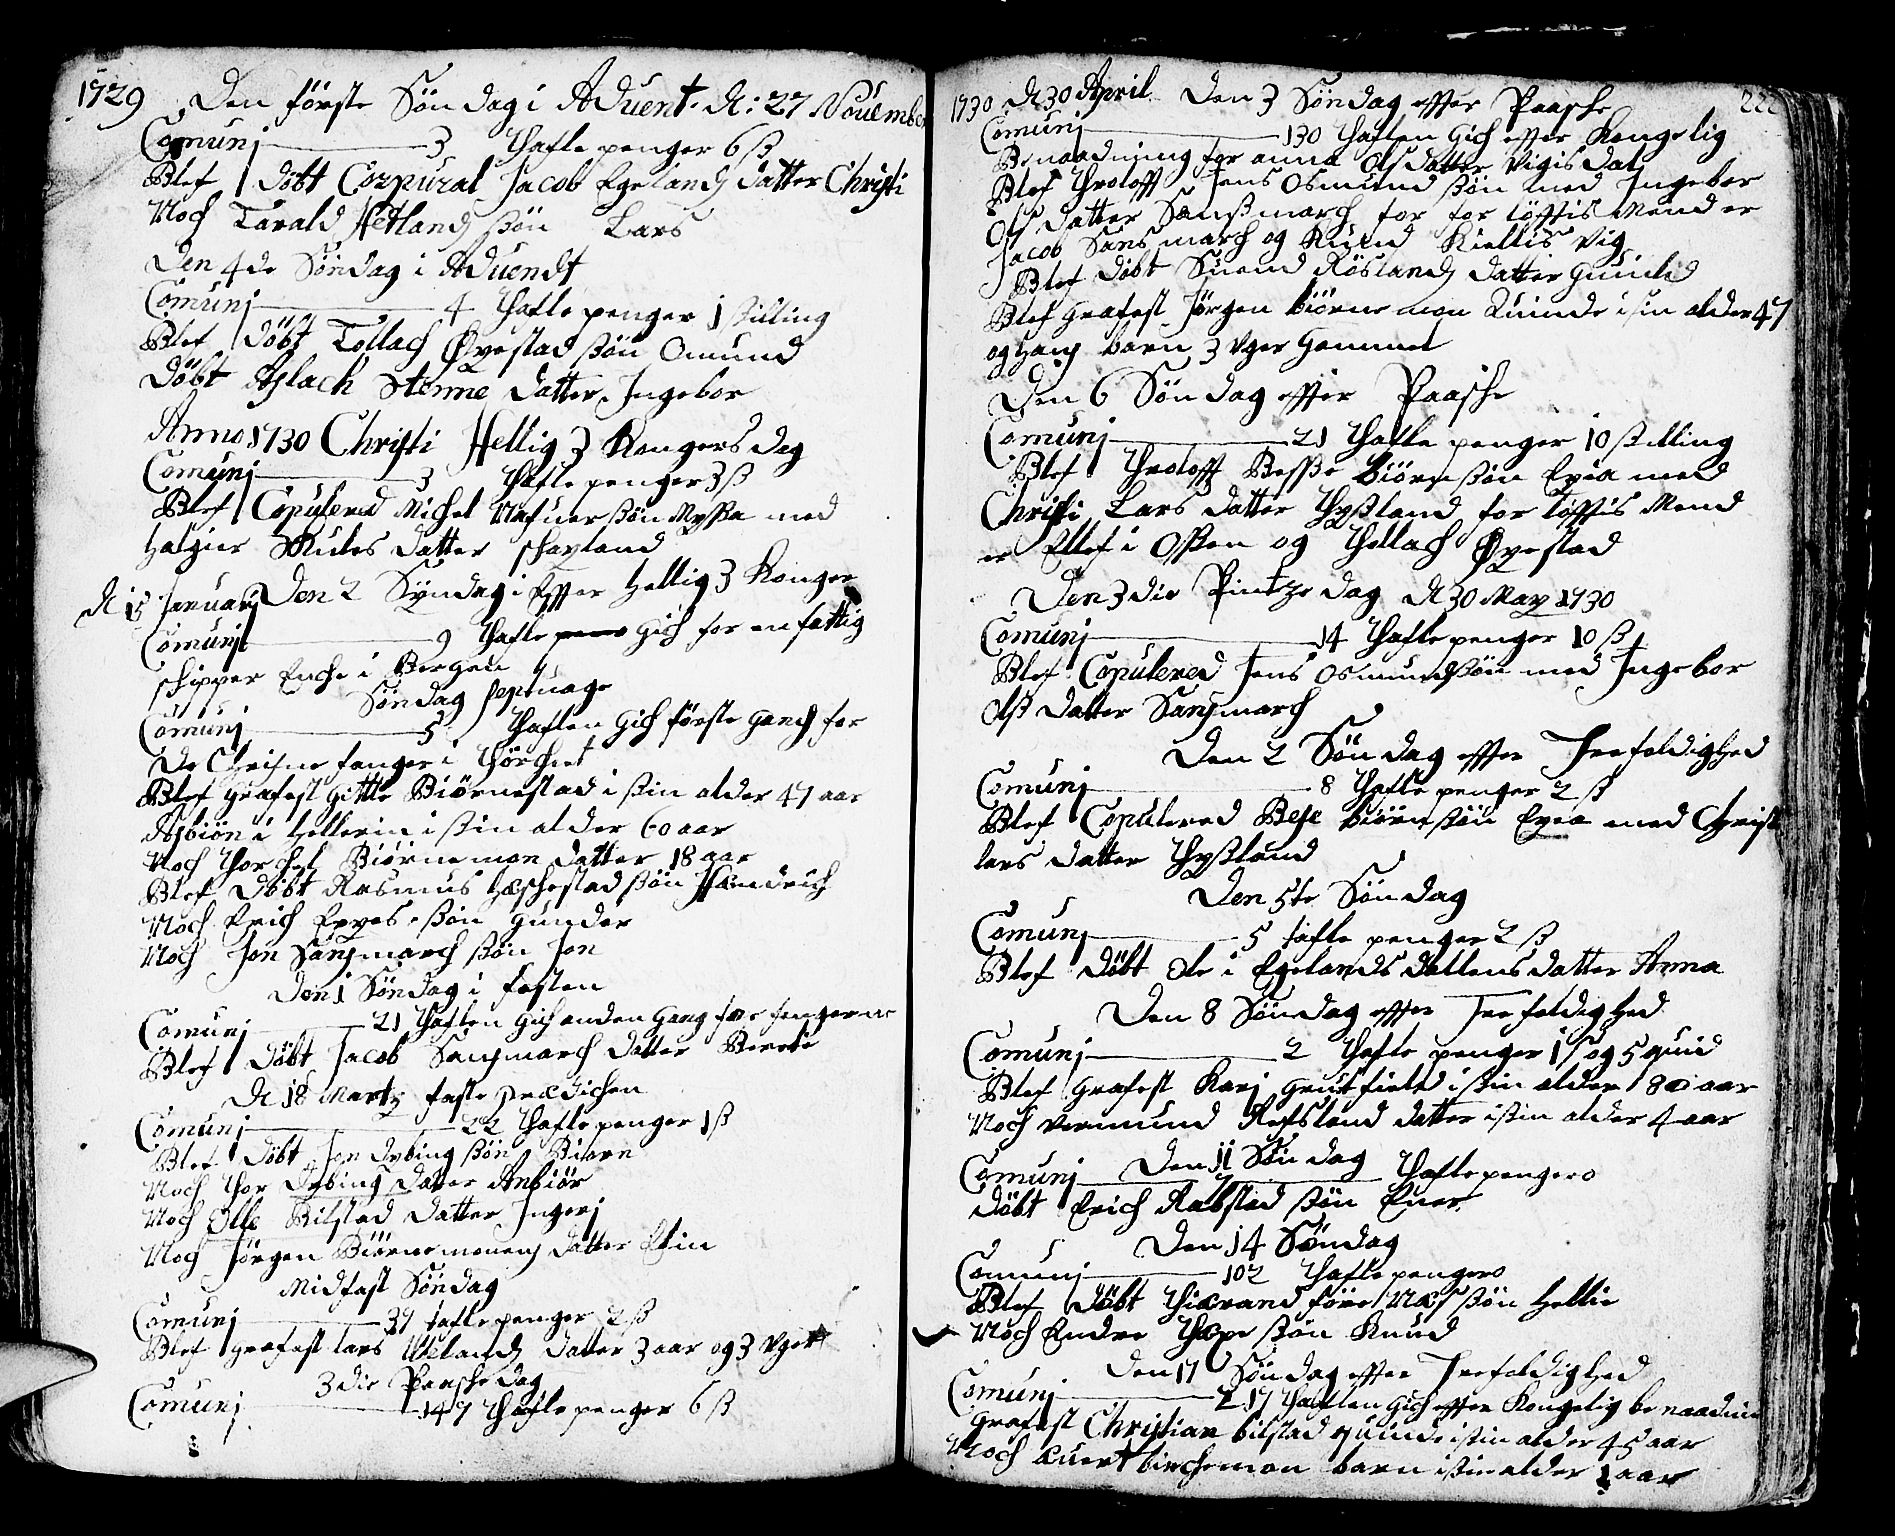 1729 Den förste Söndag i Aduent. d: 27 Nouember
Comunj 3 Thafle penger 6 ß
Blef döbt Corpural Jacob Egelands datter Christi
Noch Tarald Hetlands ßön Lars
Den 4de Söndag i Aduendt
Comunj 4 Thafle penger 1 skilling
Blef döbt Tollach Øvestad ßön Omund
Döbt Aslach Stenne datter Ingebor
Anno 1730 Christi Hellig 3 Kongers dag
Comunj 3 Thafle penger 3 ß
Blef Copulered Michel ßön Myßa med
datter
d 15 Januarj Den 2 Syndag i Effter Hellig 3 Konger
Comunj 9 Thafle gich for en fattig
schipper Enche i Bergen
Söndag septuage
Comunj 5 Thaflen gich förste gang for
De Christne fanger i Thörchiet
Blef grafest Gitte Biörnestad i ßin alder 47 aar
Asbiön i Hellerin i ßin alder 60 aar
Noch Thorchel Biörnemon datter 18 aar
Blef döbt Rasmus Hæschestad ßön Hendrich
Noch Erich ßön Gunder
Noch Jon Sansmarch ßön Jon
Den 1 Söndag i fasten
Comunj 21 Thaflen gich anden gang for fangerne
Blef döbt Jacob Sansmarch datter Berete
d 18 Marty faste prædichen
Comunj 22 Thafle penger 1 ß
Blef döbt Jon Dybing ßön Biörn
Noch Thor Dybing dater Anbiör
Noch Olle Bilstad datter Ingerj
Noch Jörgen Biörnemonens datter Elin
Midfast Söndag
Comunj 37 tafle penger 2 ß
Blef grafest Lars datter 3 aar og 3 vger
3 die Paasche dag
Comunj 147 Thafle penger 6 ß
1730 d 30 April Den 3 Söndag effter Paasche 222
Comunj 130 Thaflen gich effter Kongelig
Benaadning for Anna Olsdatter Vigisdal
Blef Troloff Jens Osmund ßön med Ingebor
Ols datter Sansmarch for for löftis Mender
Jacob Sansmarch og Knud Kiellis Vig
Blef döbt Suend Röslands datter Gunild
Blef grafest Jörgen Biörnemon Quinde i sin alder 47
og hans barn 3 vger gammel
Den 6 Söndag effter Paasche
Comunj 21 Thafle penger 10 skilling
Blef Troloff Beße Biörnßön Eyia med
Christi Lars datter Thyßland for löftis Mend
er Ellef i Oßen og Thollach Øvestad
Den 3 die Pintze dag d 30 May 1730
Comunj 14 Thafle penger 10 ß
Blef Copulered Jens Osmundßön med Ingebor
Olß datter Sansmarch
Den 2 Söndag effter Trefoldighed
Comunj 8 Thafle penger 2 ß
Blef Copulered Beße Biörnßön Eyia med Christi
Lars datter Thyßland
Den 5te Söndag
Comunj 5 tafle penger 2 ß
Blef döbt Ole i Egelands dallens datter Anna
Den 8 Söndag effter Trefoldighed
Comunj 2 Thafle penger 1 s og 5 quid
Blef grafest Karj Grutfield i ßin alder 80 aar
Noch Vermund Refsland datter i ßin alder 4 aar
Den 11 Söndag
Comunj 7 Thafle penger 0
Döbt Erich Rabstad ßön Ener
Den 14 Söndag
Comunj 102 Thafle penger 0
Blef döbt Thiærand före Næs ßön Hellie
Noch Endre Thæpe ßön Knud
Den 17 Söndag effter Trefoldighed
Comunj 217 Thaflen gich effter Kongelig benaadning
Grafest Christian Bilstad quinde i ßin alder 45 aar
Noch Euert Birchemon barn i ßin alder 1 aar